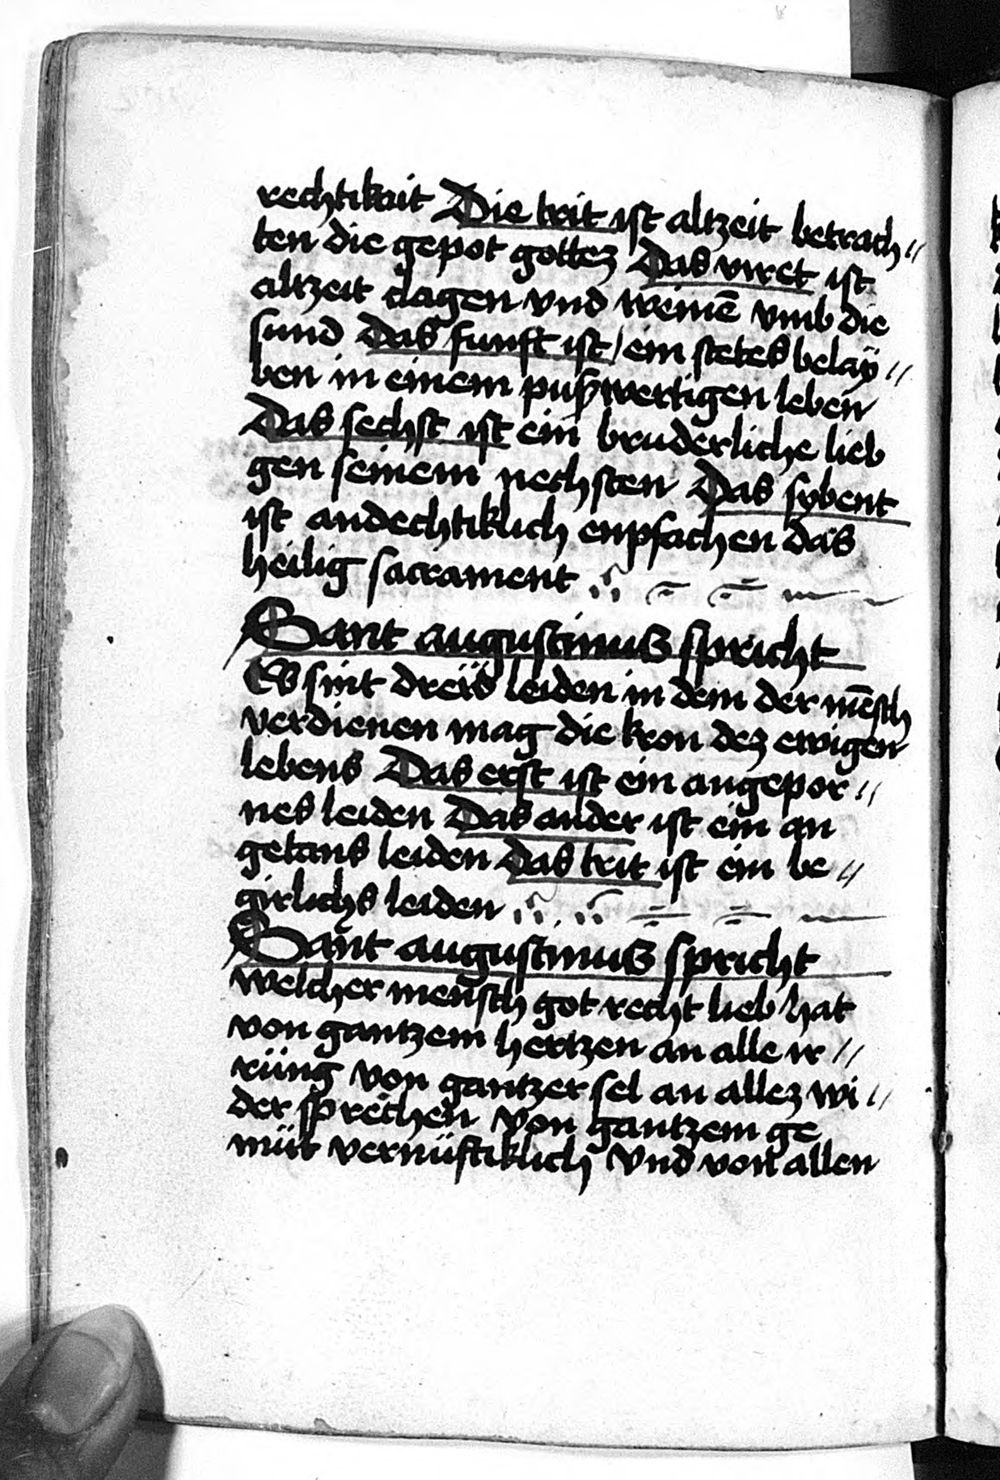 rechtikait Die trit ist altzeit betrach〃
ten die gepot gottez Das viret ist
altzeit clagen vnd weinē vmb die
sund Das funft ist / ein stetes belaÿ〃
ben in einem puſzwertigen leben
Das sechst ist ein bruderliche lieb
gen seinem nechsten Das sybent
ist andechtiklich enpfachen das
heilig sacrament
Sant augustinuß spricht
Es sint dreÿs leiden in dem der mēsch
verdienen mag die kron dez ewigen
lebens Das erst ist ein angepor〃
nes leiden Das ander ist ein an
getans leiden Das trit ist ein be〃
girlichs leiden
Sant augustinuß spricht
welcher mensch got recht lieb hat
von gantzem hertzen an alle ir〃
rüng von gantzer sel an allez wi〃
der sprechen von gantzem ge
müt vernüftiklich vnd von allen